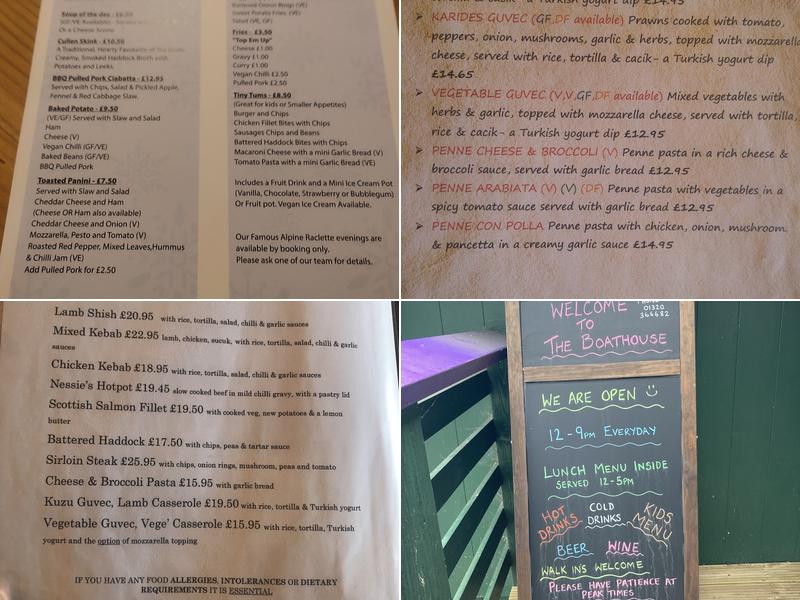 Soup of the day - £6.50
Or a Cheese Scone
Cullen Skink - £10.50
A Traditional, Hearty Favourite of
Creamy, Smoked Haddock Broth with
Potatoes and Leeks.
BBQ Pulled Pork Ciabatta - £12.95
Served with Chips, Salad & Pickled Apple,
Fennel & Red Cabbage Slaw.
Baked Potato - £9.50
(VE/GF) Served with Slaw and Salad
Ham
Cheese (V)
Vegan Chilli (GF/VE)
Baked Beans (GF/VE)
BBQ Pulled Pork
Toasted Panini - £7.50
Served with Slaw and Salad
Cheddar Cheese and Ham
(Cheese OR Ham also available)
Cheddar Cheese and Onion (V)
Mozzarella, Pesto and Tomato (V)
Roasted Red Pepper, Mixed Leaves,Hummus
& Chilli Jam (VE)
Add Pulled Pork for £2.50
Battered Onion Rings (VE)
Sweet Potato Fries (VE)
Salad (VE, GF)
Fries - £3.50
"Top Em Up"
Cheese £1.00
Gravy £1.00
Curry £1.00
Vegan Chilli £2.50
Pulled Pork £2.50
Tiny Tums - £8.50
(Great for kids or Smaller Appetites)
Burger and Chips
Chicken Fillet Bites with Chips
Sausages Chips and Beans
Battered Haddock Bites with Chips
Macaroni Cheese with a mini Garlic Bread (V)
Tomato Pasta with a mini Garlic Bread (VE)
Includes a Fruit Drink and a Mini Ice Cream Pot
(Vanilla, Chocolate, Strawberry or Bubblegum)
Or Fruit pot. Vegan Ice Cream Available.
Our Famous Alpine Raclette evenings are
available by booking only.
Please ask one of our team for details.
a Turkish yogurt dip £14.95
➢ KARIDES GUVEC (GF,DF available) Prawns cooked with tomato,
peppers, onion, mushrooms, garlic & herbs, topped with mozzarella
cheese, served with rice, tortilla & cacik- a Turkish yogurt dip
£14.65
➢ VEGETABLE GUVEC (V,V,GF,DF available) Mixed vegetables with
herbs & garlic, topped with mozzarella cheese, served with tortilla,
rice & cacik- a Turkish yogurt dip £12.95
➢ PENNE CHEESE & BROCCOLI (V) Penne pasta in a rich cheese &
broccoli sauce, served with garlic bread £12.95
➢ PENNE ARABIATA (V) (V) (DF) Penne pasta with vegetables in a
spicy tomato sauce served with garlic bread £12.95
➢ PENNE CON POLLA Penne pasta with chicken, onion, mushroom
& pancetta in a creamy garlic sauce £14.95
Lamb Shish £20.95 with rice, tortilla, salad, chilli & garlic sauces
Mixed Kebab £22.95 lamb, chicken, sucuk, with rice, tortilla, salad, chilli & garlic
sauces
Chicken Kebab £18.95 with rice, tortilla, salad, chilli & garlic sauces
Nessie's Hotpot £19.45 slow cooked beef in mild chilli gravy, with a pastry lid
Scottish Salmon Fillet £19.50 with cooked veg, new potatoes & a lemon
butter
Battered Haddock £17.50 with chips, peas & tartar sauce
Sirloin Steak £25.95 with chips, onion rings, mushroom, peas and tomato
Cheese & Broccoli Pasta £15.95 with garlic bread
Kuzu Guvec, Lamb Casserole £19.50 with rice, tortilla & Turkish yogurt
Vegetable Guvec, Vege' Casserole £15.95 with rice, tortilla, Turkish
yogurt and the option of mozzarella topping
IF YOU HAVE ANY FOOD ALLERGIES, INTOLERANCES OR DIETARY
REQUIREMENTS IT IS ESSENTIAL
WELCOME
TO
THE BOATHOUSE
01320
366682
WE ARE OPEN
12-9PM EVERYDAY
LUNCH MENU INSIDE
SERVED 12-5PM
HOT DRINKS
COLD DRINKS
KIDS MENU
BEER WINE
WALK INS WELCOME
PLEASE HAVE PATIENCE AT
PEAK TIMES